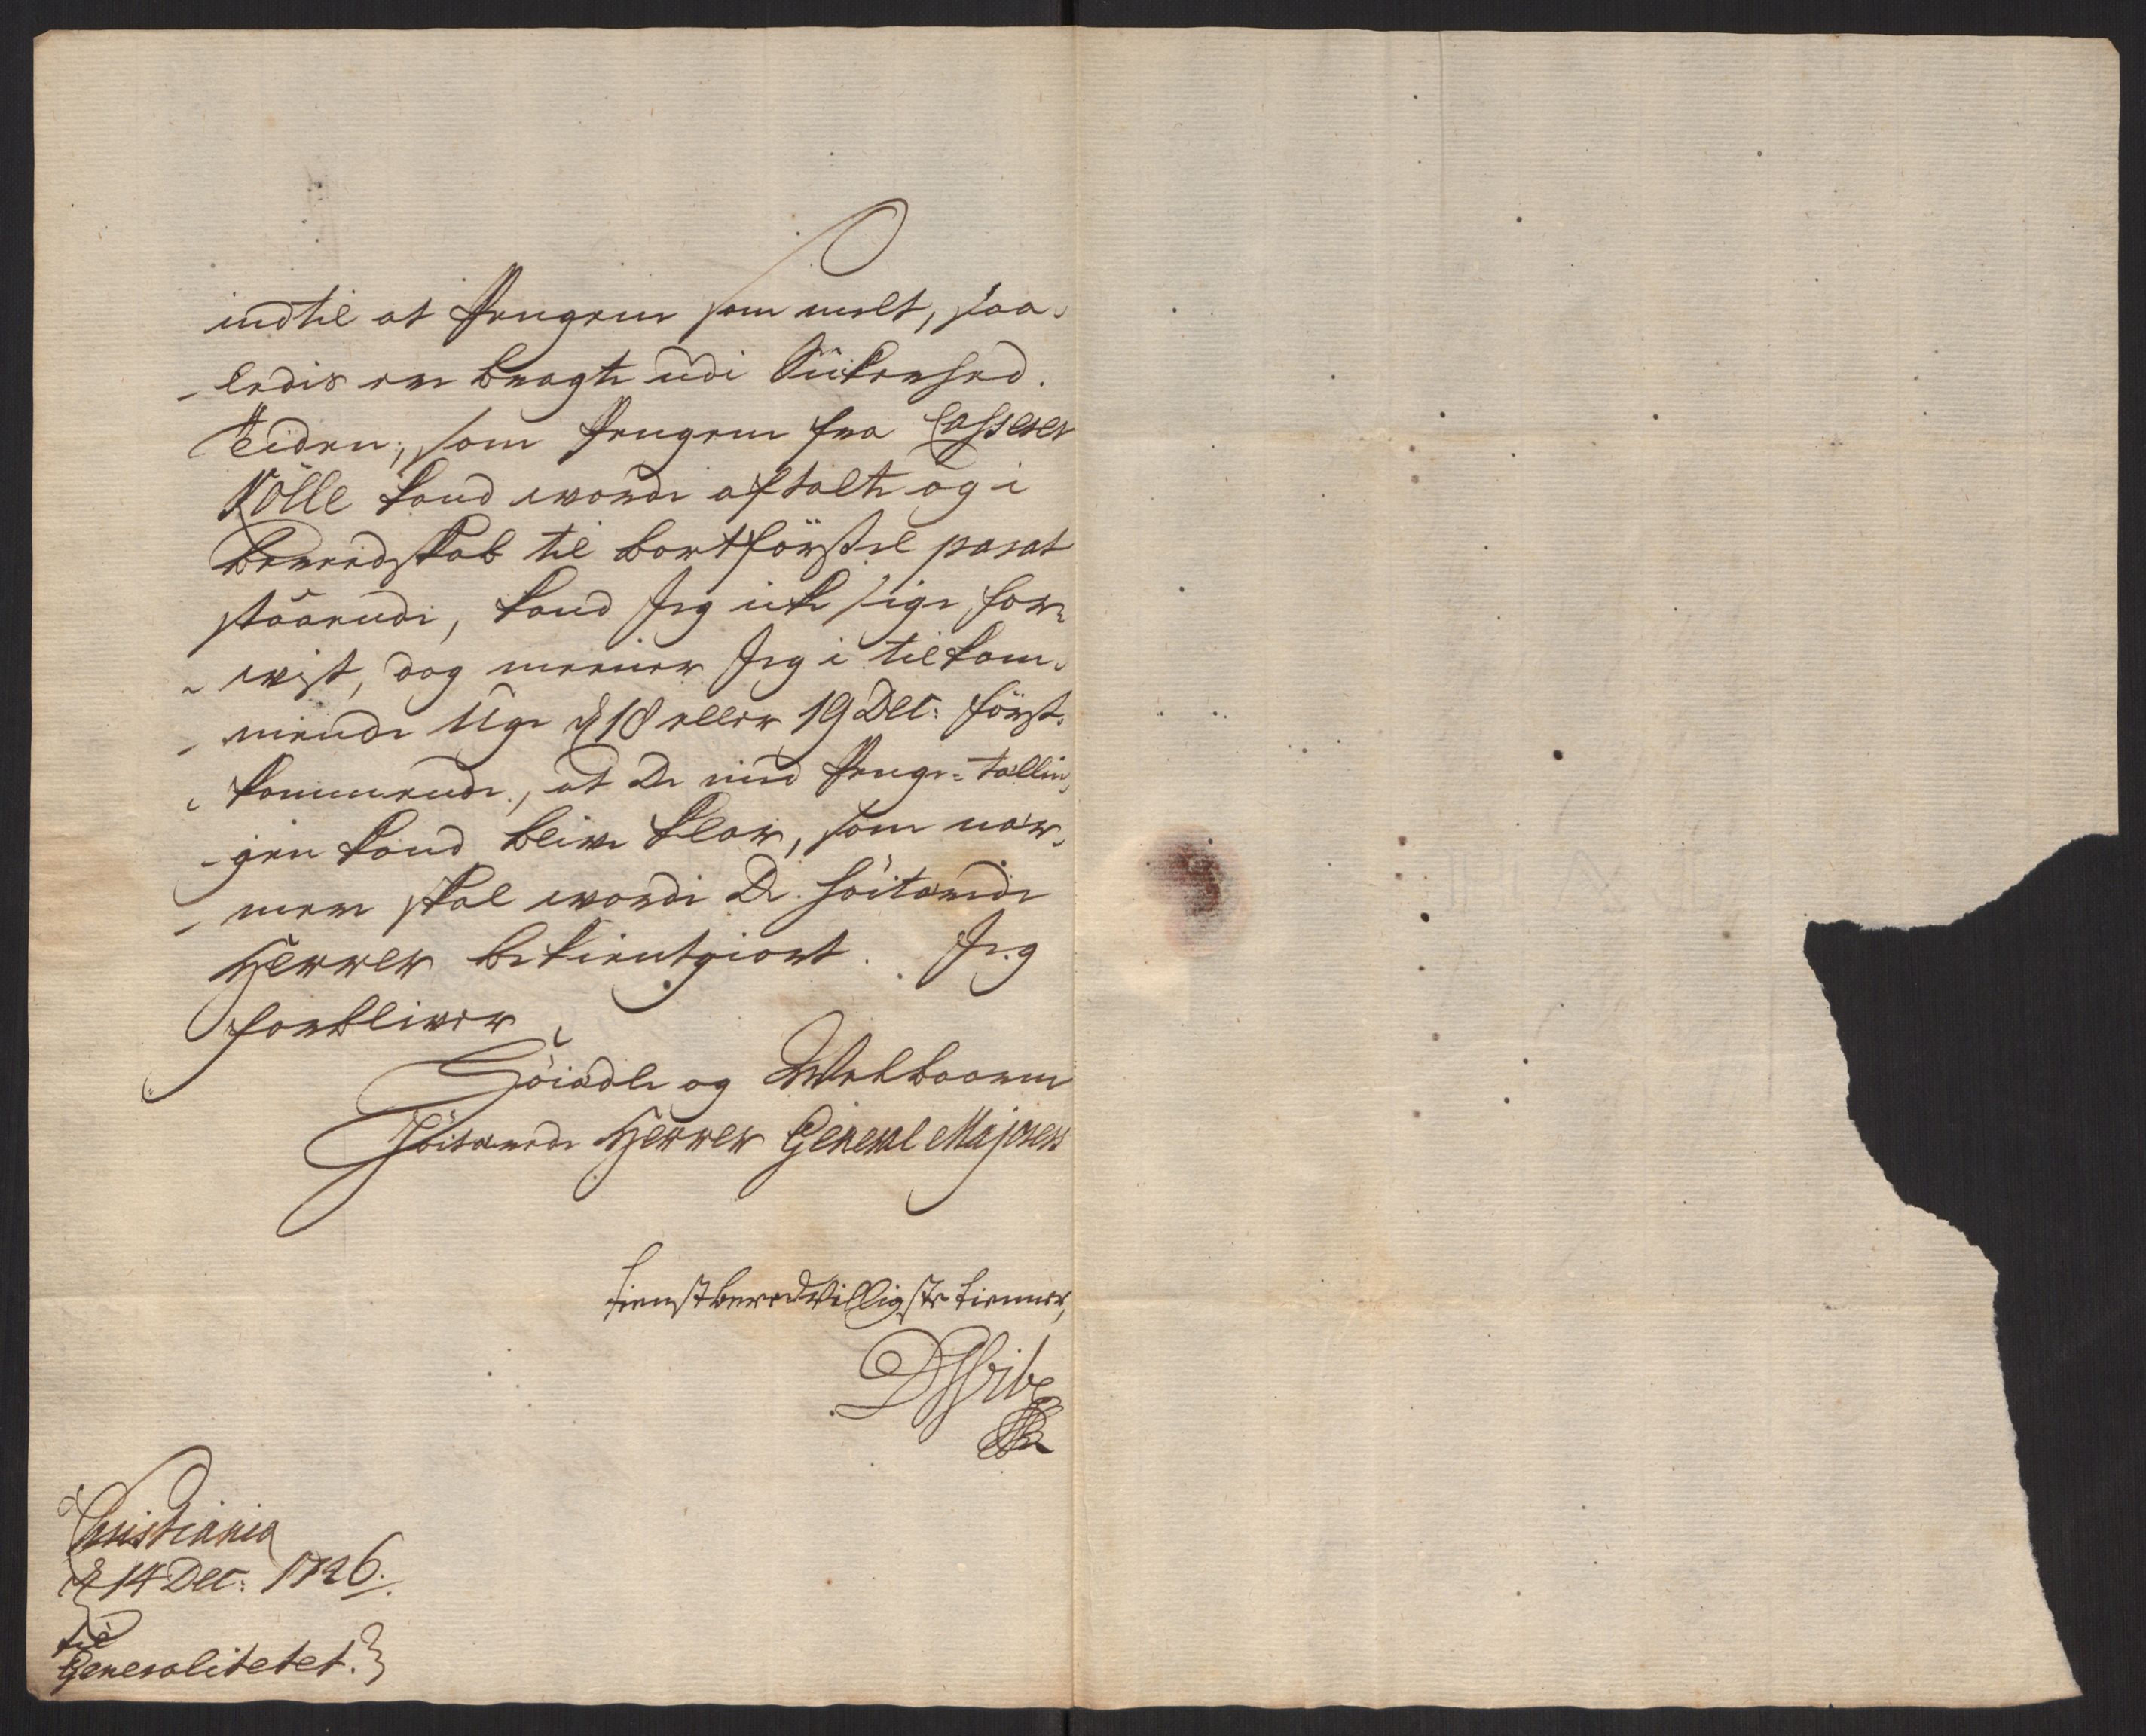 indtil at Pengene som melt, saa-
-ledis ere bragte udi Sikerhed.
Tiden, som Pengene fra Casserer
Nölle kand worde aftalte og i
Bereedskab til bortförsel parat
staaende, kand Jeg icke sige for-
-wist, dog meener Jeg i tilkom-
-mende Uge d 18 eller 19 Dec: först-
kommende, at De med Penge-tællin-
-gen kand blive klar, som nær-
-mere skal worde De höitærede
Herrer bekientgiort. Jeg
forbliver
Höiædle og Welbaarne
Höitærede Herrer General Majorers
tienstberedvilligste tienner,
DWibe
Christiania
d 14 Dec: 1726.
til
Generalitetet.